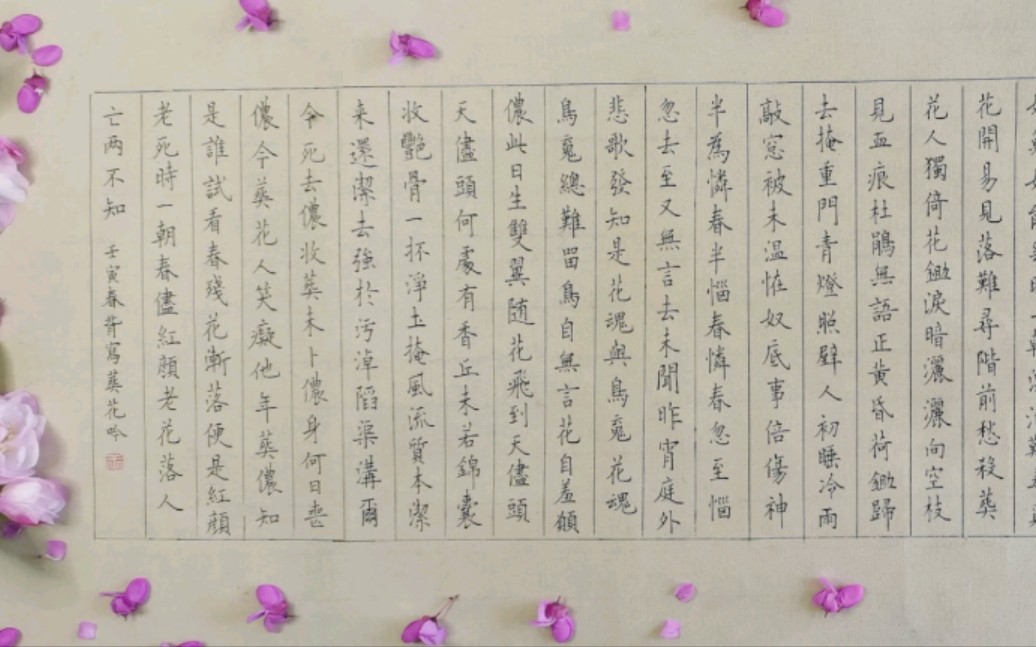 花開易見落難尋階前愁殺葬
花人獨倚花鋤淚暗灑灑向空枝
見血痕杜鵑無語正黃昏荷鋤歸
去掩重門青燈照壁人初睡冷雨
敲窓被未温怪奴底事倍傷神
半為憐春半惱春憐春忽至惱
忽去至又無言去未聞昨宵庭外
悲歌發知是花魂與鳥魂花魂
鳥魂總難留鳥自無言花自羞願
儂此日生雙翼随花飛到天儘頭
天儘頭何處有香丘未若錦囊
收艷骨一抔淨土掩風流質本潔
来還潔去強於污淖陷渠溝爾
今死去儂收葬未卜儂身何日喪
儂今葬花人笑癡他年葬儂知
是誰試看春殘花漸落便是紅顔
老死時一朝春儘紅顔老花落人
亡两不知 壬寅春寫葬花吟